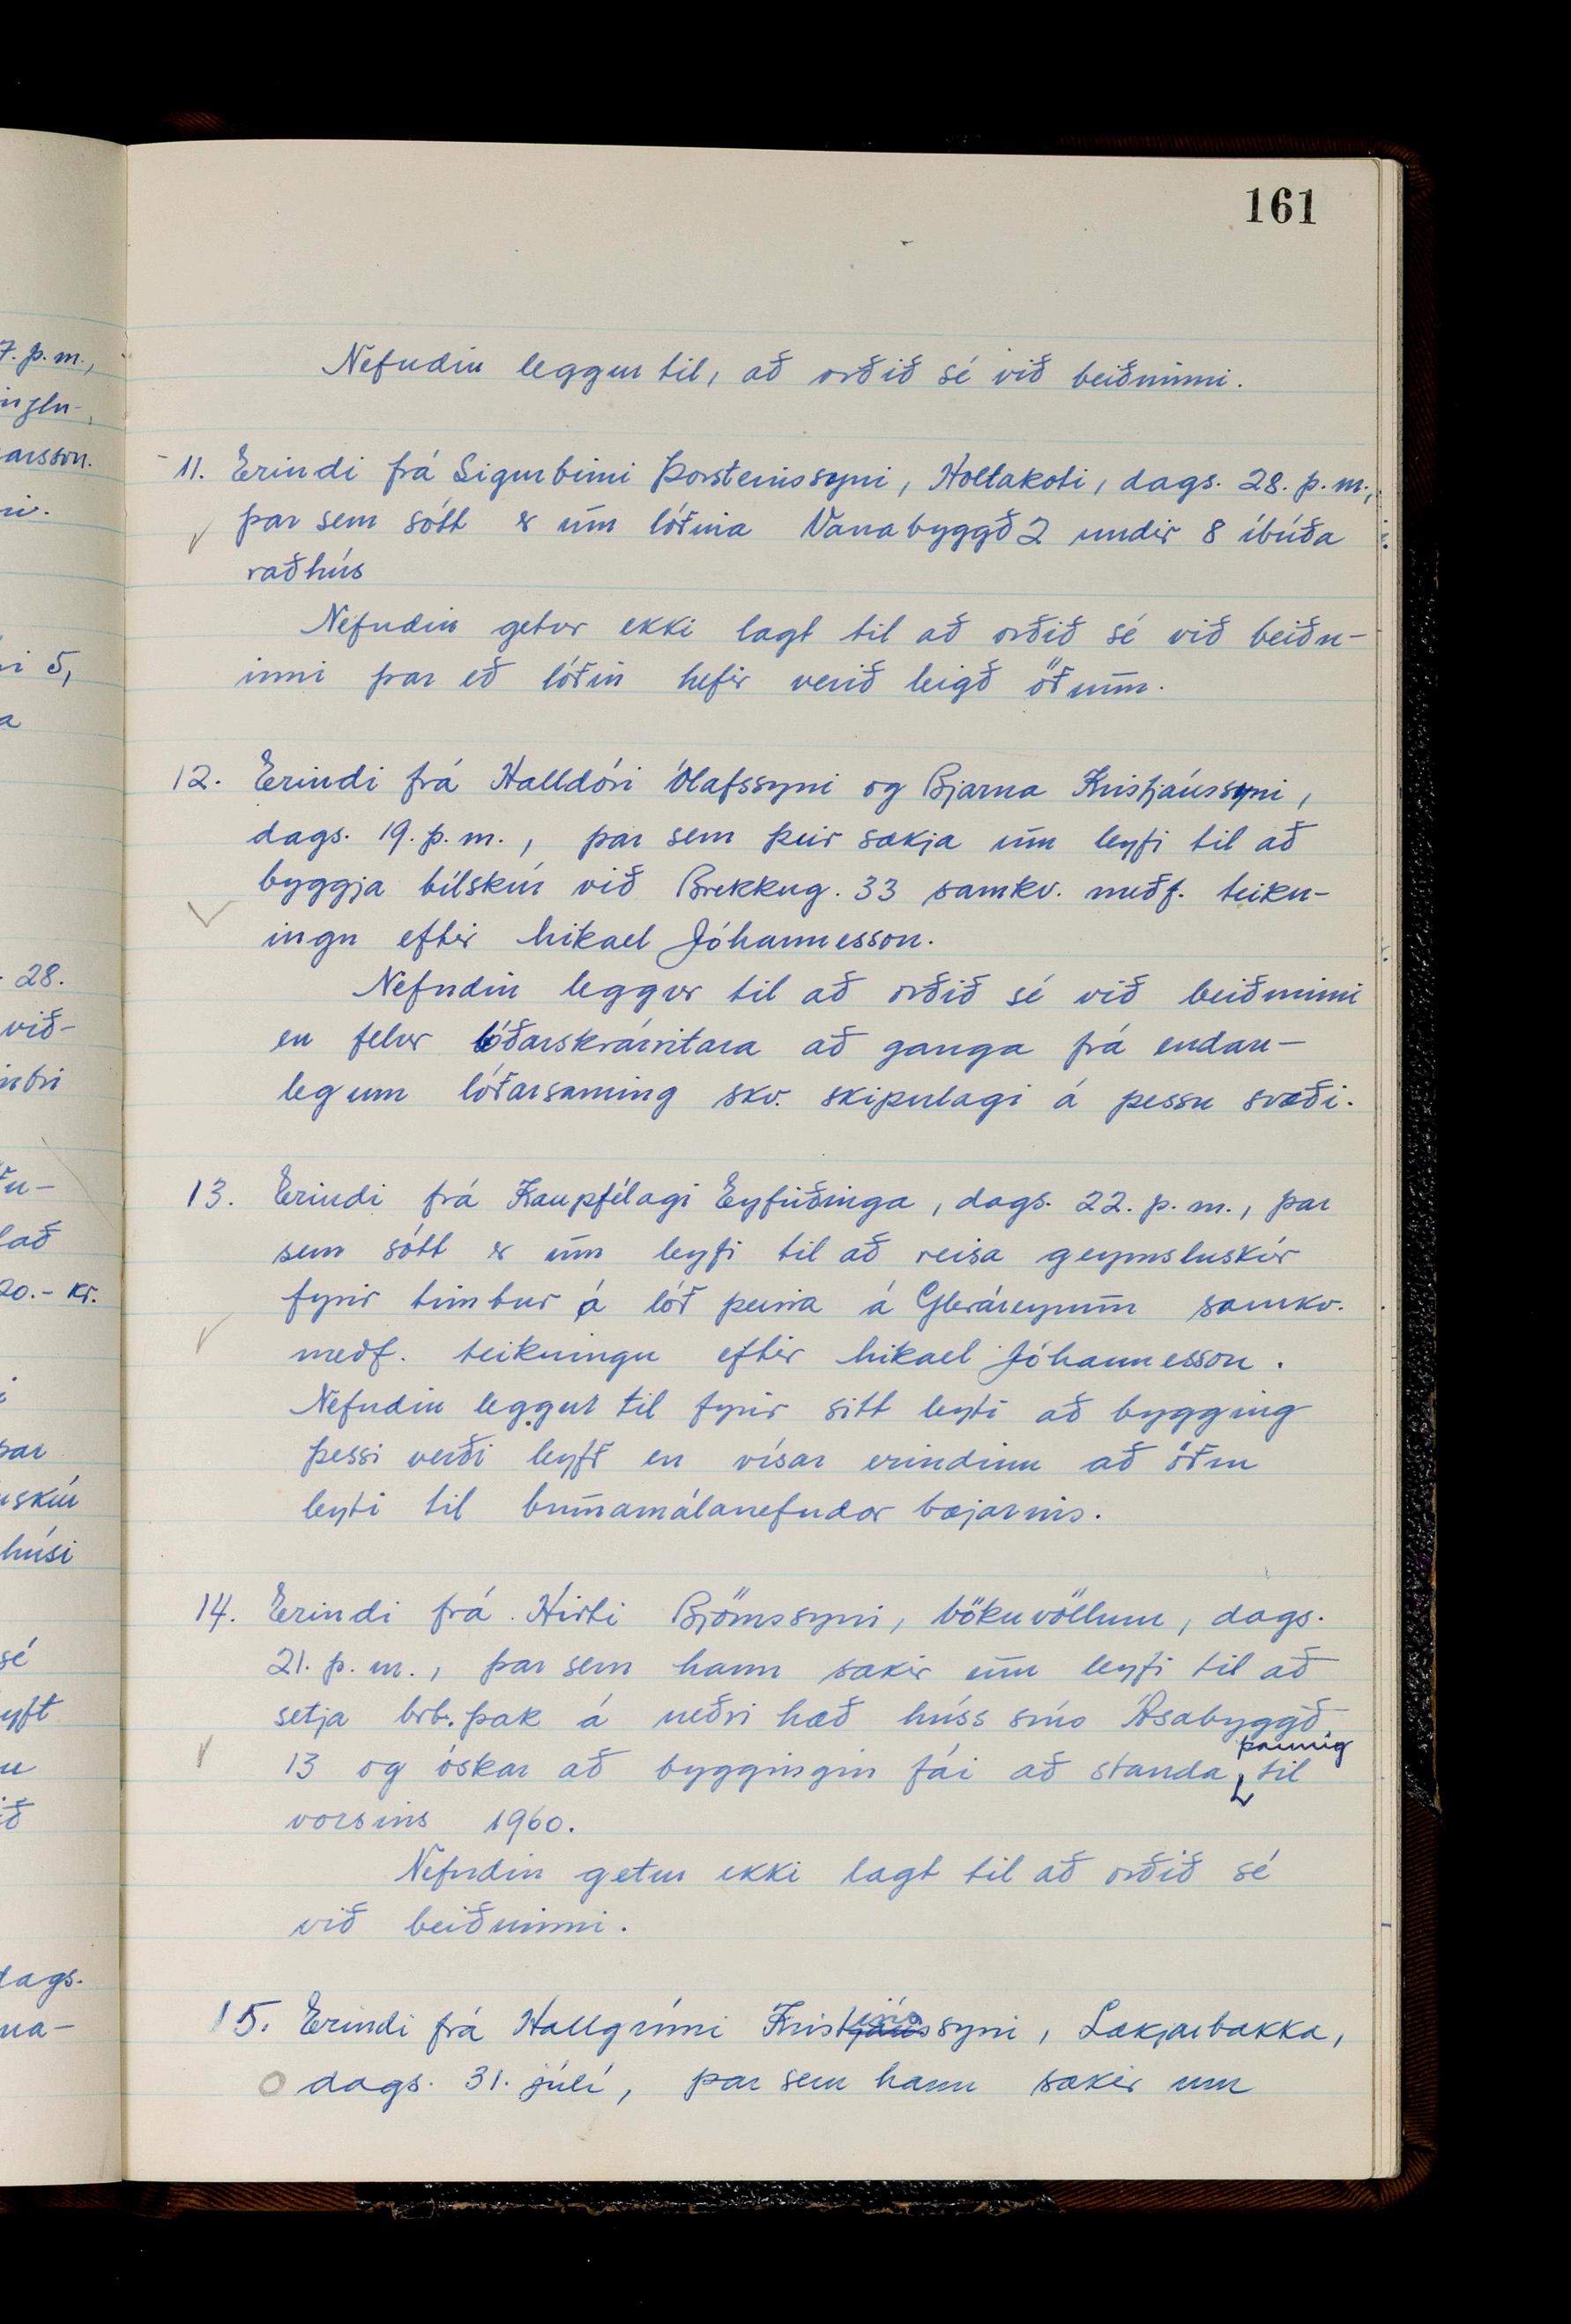 161
7. þ. m.,
arsson.
ni 5,
a
- 28.
við-
20.- kr.
þar
húsi
sé
dags.
Nefndin leggur til, að orðið sé við beiðninni.
11. Erindi frá Sigurbirni Þorsteinssyni, Holtakoti, dags. 28. þ. m.,
þar sem sótt er um lóðina Vanabyggð 2 undir 8 íbúða
raðhús
Nefndin getur ekki lagt til að orðið sé við beiðn-
inni þar eð lóðin hefir verið leigð öðrum.
12. Erindi frá Halldóri Ólafssyni og Bjarna Kristjánssyni,
dags. 19. þ. m., þar sem þeir sækja um leyfi til að
byggja bílskúr við Brekkug. 33 samkv. meðf. teikn-
ingu eftir Mikael Jóhannesson.
Nefndin leggur til að orðið sé við beiðninni
en felur lóðarskrárritara að ganga frá endan-
legum lóðarsamning skv. skipulagi á þessu svæði.
13. Erindi frá Kaupfélagi Eyfirðinga, dags. 22. þ. m., þar
sem sótt er um leyfi til að reisa geymsluskúr
fyrir timbur á lóð þeirra á Gleráreyrum samkv.
meðf. teikningu eftir Mikael Jóhannesson.
Nefndin leggur til fyrir sitt leyti að bygging
þessi verði leyfð en vísar erindinu að öðru
leyti til brunamálanefndar bæjarins.
14. Erindi frá Hirti Björnssyni, Bökuvöllum, dags.
21. þ. m., þar sem hann sækir um leyfi til að
setja brb. þak á neðri hæð húss síns Ásabyggð
13 og óskar að byggingin fái að standa þannig til
vorsins 1960.
Nefndin getur ekki lagt til að orðið sé
við beiðninni.
15. Erindi frá Hallgrími Kristjánssyni, Lækjarbakka,
dags. 31. júlí, þar sem hann sækir um